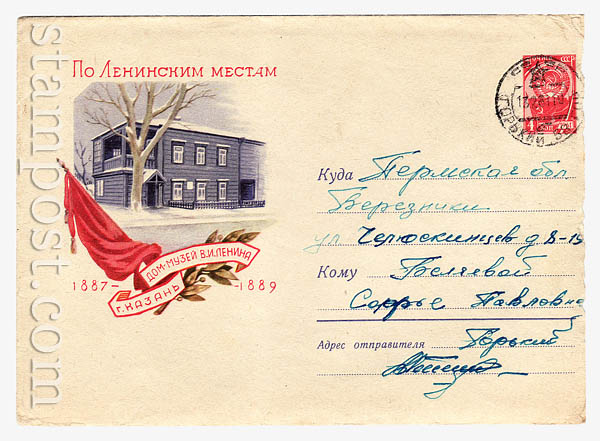 stampost.com
По Ленинским местам
ДОМ-МУЗЕЙ В.И.ЛЕНИНА
г. КАЗАНЬ
1887-1889
ПОЧТА СССР
ГОРЬКИЙ
Куда Пермская обл.
Березники
ул Черюскинцев д 8-19
Кому Беляевой
Софье Павловне
Адрес отправителя Горький